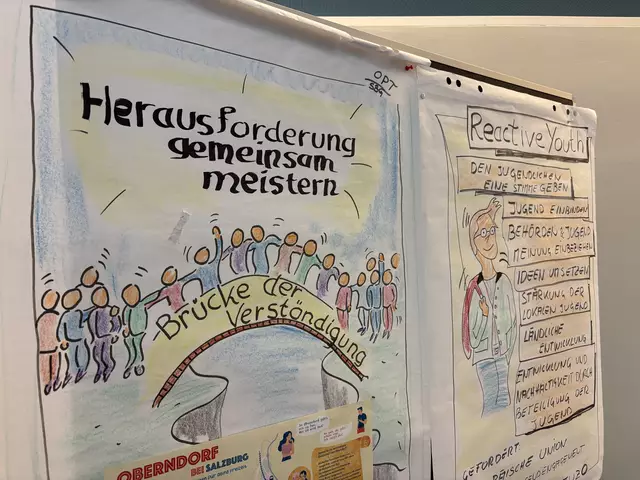 OPT
SSg
Herausforderung
gemeinsam
meistern
Brücke der
Verständigung
OBERNDORF
BEI SALZBURG
Reactive Youth
DEN JUGENDLICHEN
EINE STIMME GEBEN
JUGEND EINBINDEN
BEHÖRDEN & JUGEND
MEINUNG EINBEZIEHEN
IDEEN UMSETZEN
STÄRKUNG DER
LOKALEN JUGEND
LÄNDLICHE
ENTWICKLUNG
ENTWICKLUNG UND
NACHHALTIGKEIT DURCH
BETEILIGUNG DER
JUGEND
GEFÖRDERT
UNION